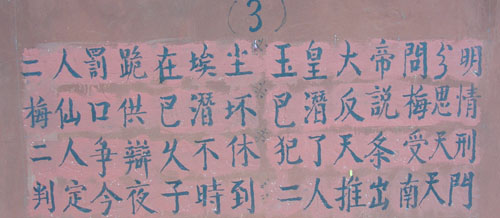 (3)
二人罰跪在埃尘 玉皇大帝問分明
梅仙口供巴潛坏 巴潛反說梅思情
二人爭辯久不休 犯了天条受天刑
判定今夜子時到 二人推出南天門